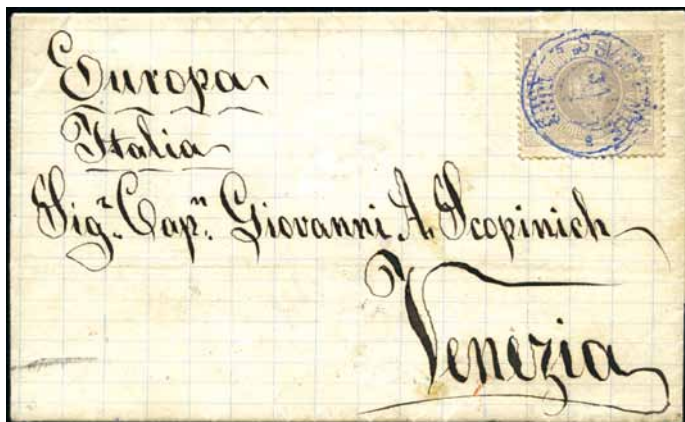 Europa
Italia
Sigr. Capn. Giovanni A. Scopinich
Venezia